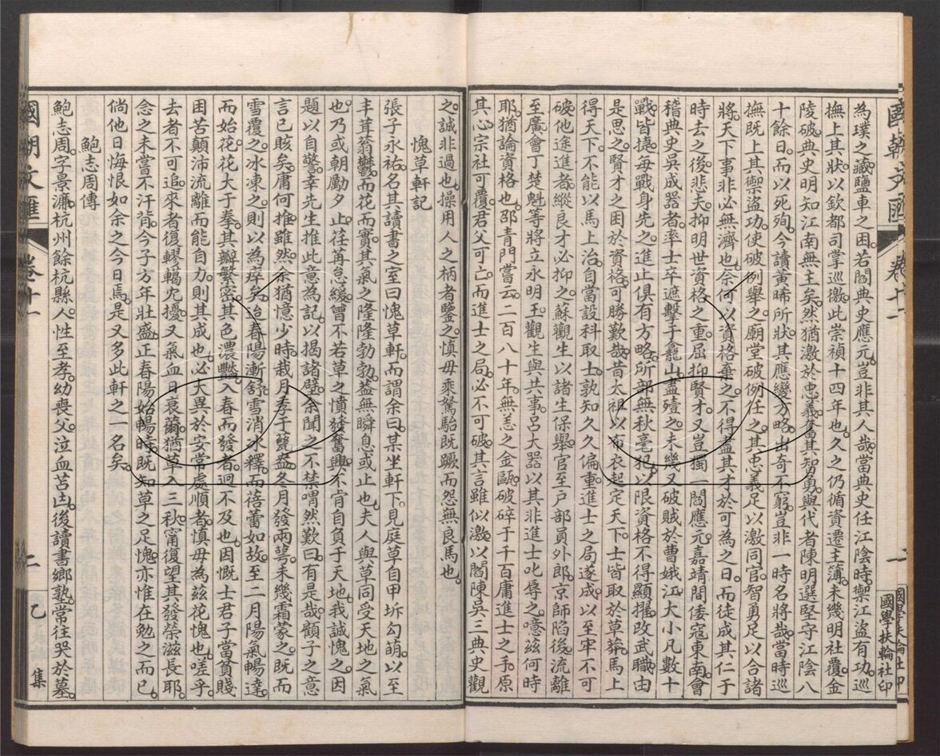 國朝文匯 卷十一 二 國學扶輪社印
為璞之藏鹽車之困若閻典史應元豈非其人哉當典史任江陰時禦江盜有功巡
撫上其狀以欽都司掌巡徼此崇禎十四年也久之仍循資遷主簿未幾明社覆金
陵破典史明知江南無主矣然猶激於忠義奮其智勇與代者陳明選堅守江陰八
十餘日而以死殉今讀黃晞所狀其應變方略出奇不窮豈非一時名將哉當時巡
撫既上其禦盜功使破例舉之廟堂破例任之其忠義足以激同官智勇足以合諸
將天下事非必無濟也奈何以資格棄之不得盡其才於可為之日而徒成其仁于
時去之後悲夫抑明世資格之重屈抑賢才又豈獨一閻應元嘉靖間倭寇東南會
稽典史吳成器者率士卒遮擊于龕山盡殪之未幾又破賊於曹娥江大小凡數十
戰皆捷每戰身先之進止俱有方略所部無秋毫犯以限資格不得顯擢改武職由
是思之賢才之困於資格可勝歎哉昔太祖以布衣起定天下士皆取於草莽馬上
得天下不能以馬上治自當設科取士孰知久久偏重進士之局遂成以至牢不可
破他途進者縱良才必抑之蘇觀生以諸生保舉官至戶部員外郎京師陷後流離
至廣會丁楚魁等將立永明王觀生與共事呂大器以其非進士叱辱之噫茲何時
耶猶論資格也邵青門嘗云二百八十年無恙之金甌破碎于千百庸進士之手原
其心宗社可覆君父可亡而進士之局必不可破其言雖似激以閻陳吳三典史觀
之誠非過也操用人之柄者鑒之慎毋乘駑駘既躓而怨無良馬也
愧草軒記
張子永祐名其讀書之室曰愧草軒而謂余曰某坐軒下見庭草自甲坼勾萌以至
丰茸蓊鬱而花而實其氣之隆隆勃勃蓋無瞬息或止也夫人與草同受天地之氣
也乃或朝勵夕止荏苒怠緩曾不若草之憤發奮興不肯自負于天地我誠愧之因
題以自警幸先生推此意為記以揭諸壁余聞之不禁喟然歎曰有是哉顧子之意
言已賅矣庸何推雖然余猶憶少時栽月季于甕盎冬月發兩萼未幾霜蒙之既而
雪覆之冰凍之則以為瘁矣迨春陽漸舒雪消冰釋而蓓蕾如故至二月陽氣暢達
而始花花大于拳其瓣繁密其色濃豔入春而發者迥不及也因慨士君子當貧賤
困苦顛沛流離而能自力則其成也必大異於安常處順者慎毋為茲花愧也嗟乎
去者不可追來者復轇轕尤擾又氣血日衰薾猶草入三秋甯復望其發榮滋長耶
念之未嘗不汗背今子方年壯盛正春陽始暢時既知草之足愧亦惟在勉之而已
倘他日悔恨如余之今日焉是又多此軒之一名矣
鮑志周傳
鮑志周字景濂杭州餘杭縣人性至孝幼喪父泣血苫凷後讀書鄉塾常往哭於墓
國朝文匯 卷十一 二 乙集